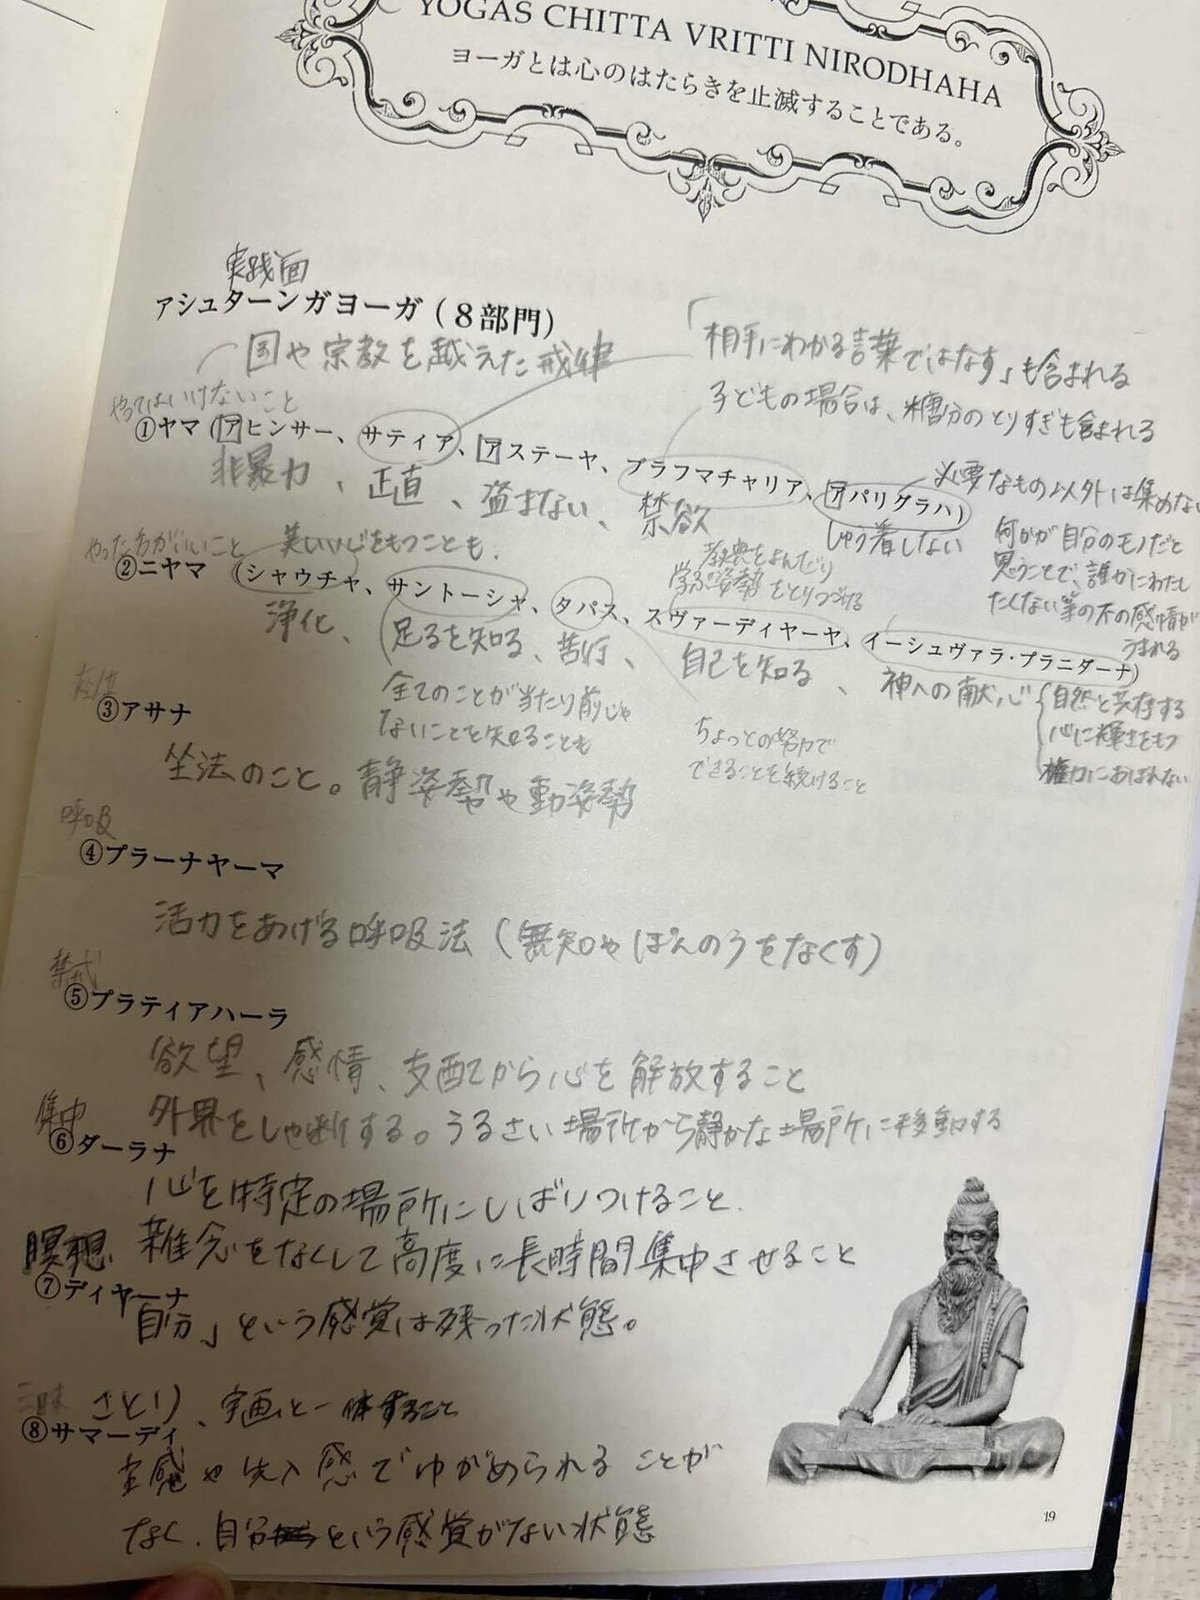 YOGAS CHITTA VRITTI NIRODHAHA
ヨーガとは心のはたらきを止滅することである。
実践面
アシュターンガヨーガ(8部門)
国や宗教を越えた戒律
「相手にわかる言葉ではなす」も含まれる
子どもの場合は、糖分のとりすぎも含まれる
やってはいけないこと
①ヤマ(アヒンサー、サティア、アステーヤ、ブラフマチャリア、アパリグラハ)
非暴力、正直、盗まない、禁欲
しゅう着しない
必要なもの以外は集めない
何かが自分のモノだと
思うことで、誰かにわたし
たくない等の不の感情が
うまれる
やった方がいいこと
美しい心をもつことも.
教典をよんだり
学ぶ姿勢をとりつづける
②ニヤマ(シャウチャ、サントーシャ、タパス、スヴァーディヤーヤ、イーシュヴァラ・プラニダーナ)
浄化、足るを知る、苦行、自己を知る、神への献心
全てのことが当たり前じゃ
ないことを知ることも
ちょっとの努力で
できることを続けること
自然と共存する
心に輝きをもつ
権力におぼれない
坐法
③アサナ
坐法のこと。静姿勢や動姿勢
呼吸
④プラーナヤーマ
活力をあげる呼吸法(無知やぼんのうをなくす)
⑤プラティアハーラ
欲望、感情、支配から心を解放すること
外界をしゃ断する。うるさい場所から静かな場所に移動する
集中
⑥ダーラナ
心を特定の場所にしばりつけること.
瞑想
雑念をなくして高度に長時間集中させること
⑦ディヤーナ
自分」という感覚は残った状態。
三昧
さとり、
⑧サマーディ
や先入感でゆがめられることが
なく、自分という感覚がない状態
19